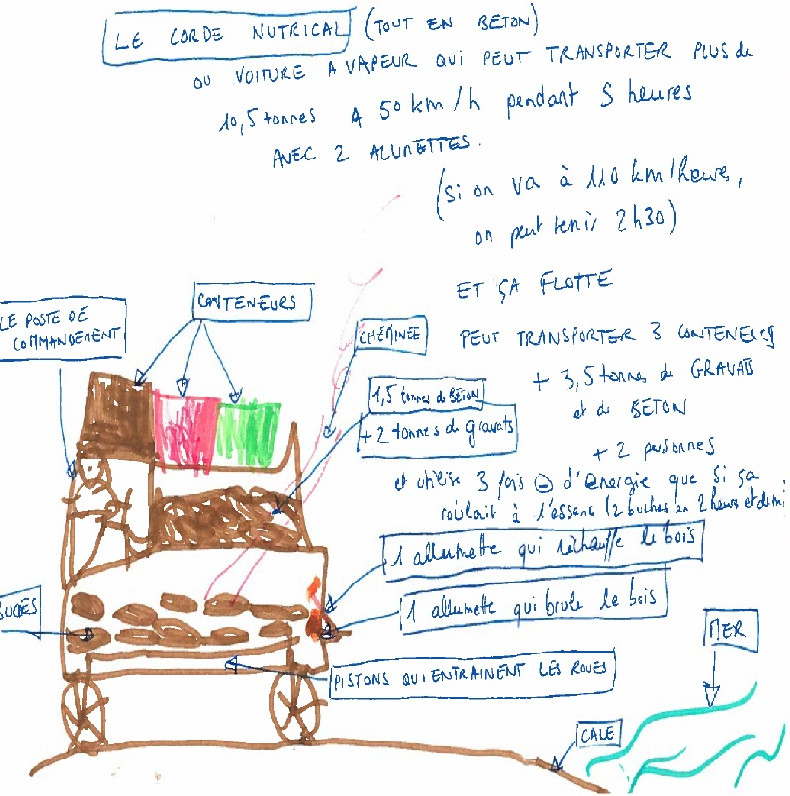 LE CORDE NUTRICAL (TOUT EN BETON)
OU VOITURE A VAPEUR QUI PEUT TRANSPORTER PLUS de
10,5 tonnes A 50 km/h pendant 5 heures
AVEC 2 ALUMETTES.
(si on va à 110 km/heure,
on peut tenir 2h30)
ET ÇA FLOTTE
PEUT TRANSPORTER 3 CONTENEURS
+ 3,5 tonnes de GRAVATS
et de BETON
+ 2 personnes
et utilise 3 fois - d'énergie que si ça
roulait à l'essence (2 buches en 2 heures et demi
LE POSTE DE
COMMANDEMENT
CONTENEURS
CHEMINEE
1,5 tonnes de BETON
+ 2 tonnes de gravats
1 allumette qui réchauffe le bois
1 allumette qui brule le bois
PISTONS QUI ENTRAINENT LES ROUES
MER
CALE